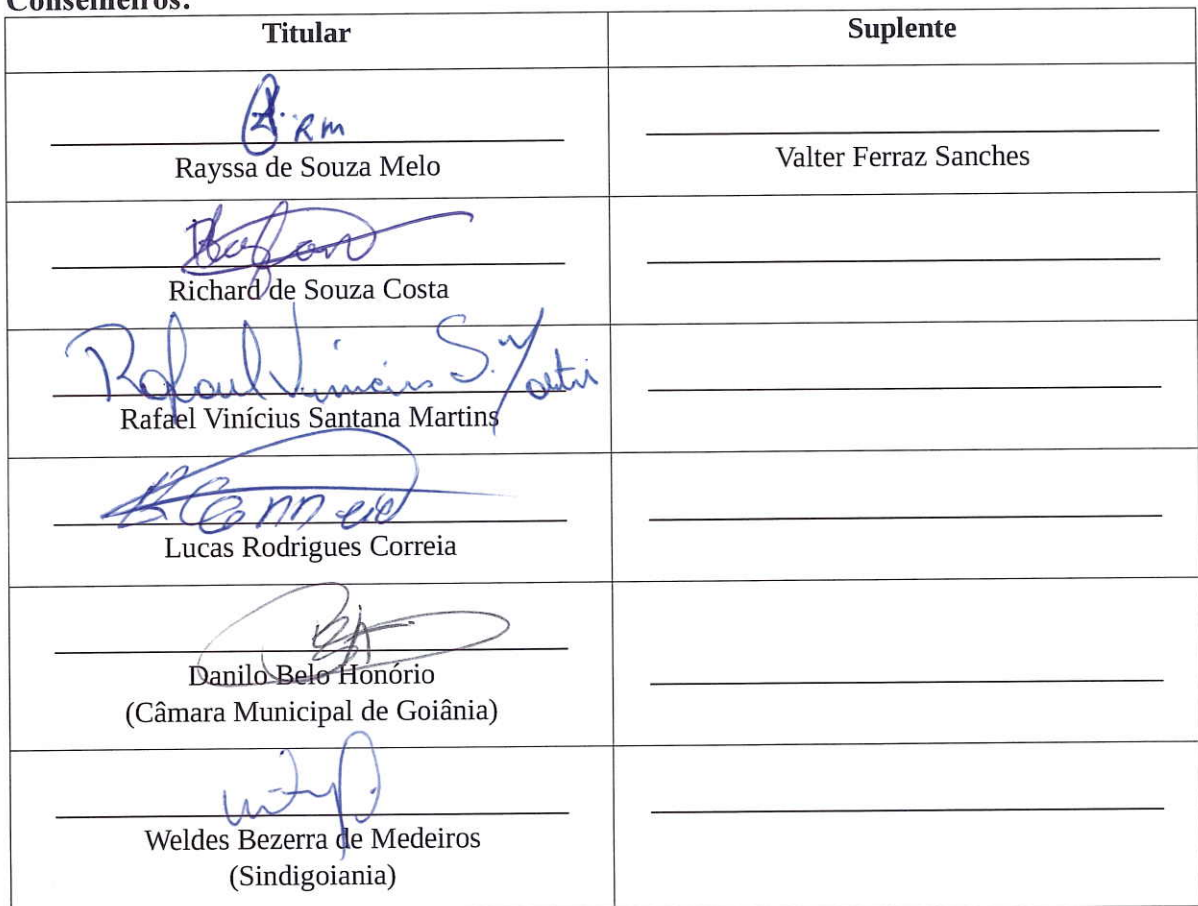 Conselheiros:
Titular
Suplente
RM
Rayssa de Souza Melo
Valter Ferraz Sanches
Richard de Souza Costa
Rafael Vinicius S. Martins
Rafael Vinícius Santana Martins
Lucas Rodrigues Correia
Danilo Belo Honório
(Câmara Municipal de Goiânia)
Weldes Bezerra de Medeiros
(Sindigoiania)